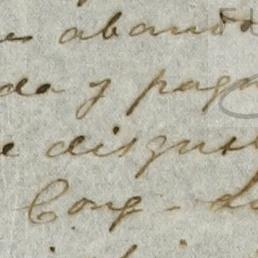 abando
da y pag
e disgus
Cong - L